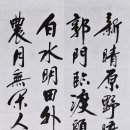 新晴原野曠
郭門臨渡頭
白水明田外
農月無閑人